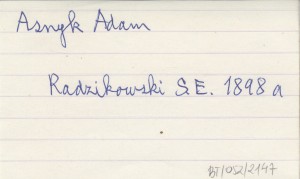 Asnyk Adam
Radzikowski S.E. 1898 a
BT/OS2/2147